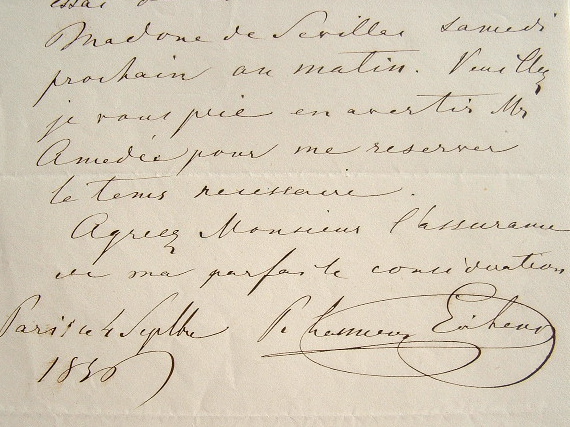 essai
Madone de Sevilles samedi
prochain au matin. Veuillez
je vous prie en avertir Mr
Amedée pour me reserver
le tems necessaire.
Agreez Monsieur l'assurance
de ma parfaite consideration
Paris le 4 Septbre
1850